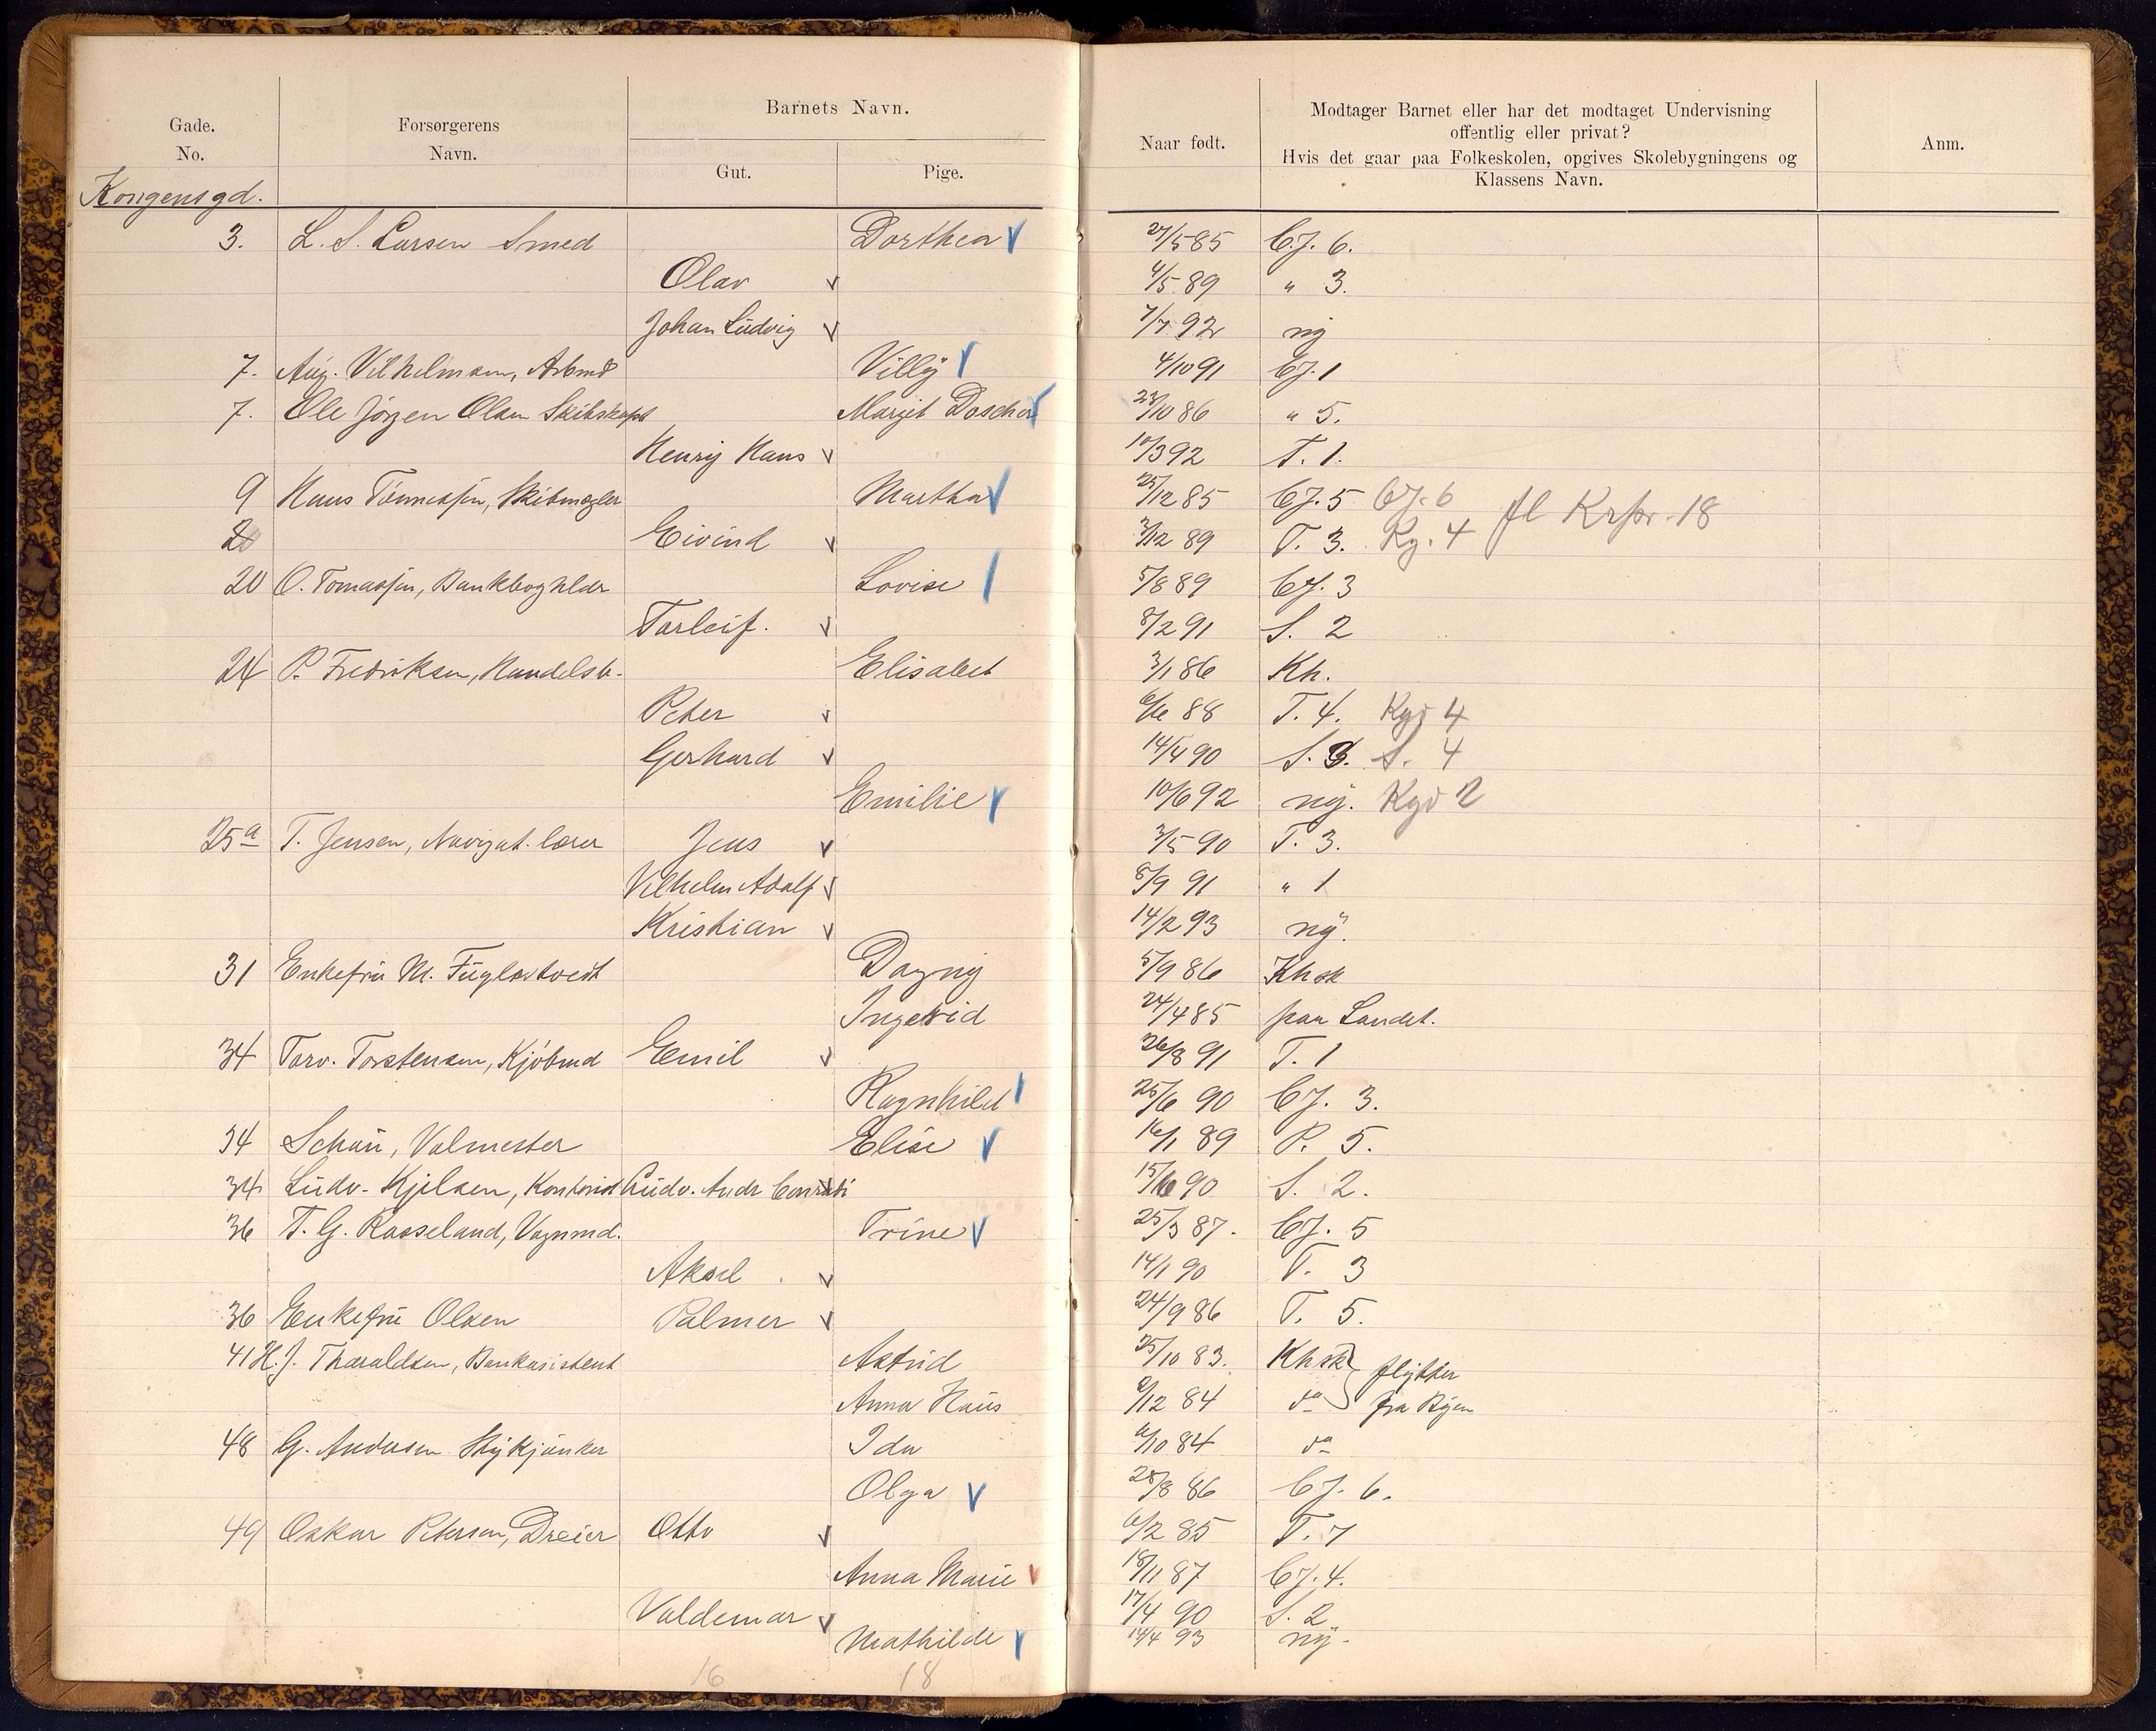 Gade.
No.
Forsørgerens
Navn.
Barnets Navn.
Gut.
Pige.
Naar født.
Modtager Barnet eller har det modtaget Undervisning
offentlig eller privat?
Hvis det gaar paa Folkeskolen, opgives Skolebygningens og
Klassens Navn.
Anm.
Kongensgd.
3. L. S. Larsen Smed Dorthea 27/5 85 CJ. 6.
Olav 4/5 89 " 3.
Johan Ludvig 7/7 92 ny
7. Aug. Vilhelmsen, Arbmd Villy 4/10 91 CJ. 1
7. Ole Jörgen Olsen Skibskapt Margit 23/10 86 " 5.
Henry Hans 10/3 92 T. 1.
9 Hans Tönnessen, Skibmægler Martha 25/12 85 CJ. 5 CJ. 6 fl Krpr. 18
Eivind 3/12 89 T. 3. Kg. 4
20 O. Tomassen, Bankboghldr Lovise 5/8 89 CJ. 3
Torleif. 8/2 91 S. 2
24 P. Fredriksen, Handelsb. Elisabet 3/1 86 Kh.
Peter 6/6 88 T. 4. Kgd 4
Gerhard 14/4 90 S. 3. S. 4
Emilie 10/6 92 ny. Kgd 2
25a T. Jensen, Navigat. lærer Jens 3/5 90 T. 3.
Vilhelm Adolf 8/9 91 " 1
Kristian 14/2 93 ny.
31 Enkefru M. Fuglestvedt Dagny 5/9 86 Khsk
Ingerid 24/4 85 paa Landet.
34 Torv. Torstensen, Kjöbmd Emil 26/8 91 T. 1
Ragnhild 25/6 90 CJ. 3.
34 Schau, Valmester Elise 16/1 89 P. 5.
34 Ludv. Kjelsen, Kontorist Ludv. Andr Conradi 15/6 90 S. 2.
36 T. G. Rosseland, Vognmd. Trine 25/3 87. CJ. 5
Aksel 14/1 90 T. 3
36 Enkefru Olsen Palmer 24/9 86 T. 5.
41 H. J. Tharaldsen, Bankasistent Astrid 25/10 83. Khsk flytter
Anna 2/12 84 do fra Byen
48 G. Andersen Ida 6/10 84 do
Olga 28/8 86 CJ. 6.
49 Oskar Petersen, Dreier Otto 6/2 85 T. 7
Anna Marie 18/11 87 CJ. 4.
Valdemar 17/4 90 S. 2
Mathilde 14/4 93 ny.
16 18